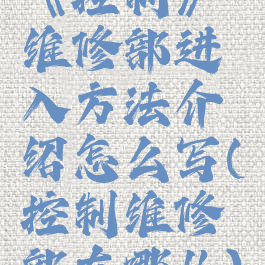 《控制》
维修部进
入方法介
绍怎么写(
控制维修
部在哪儿)